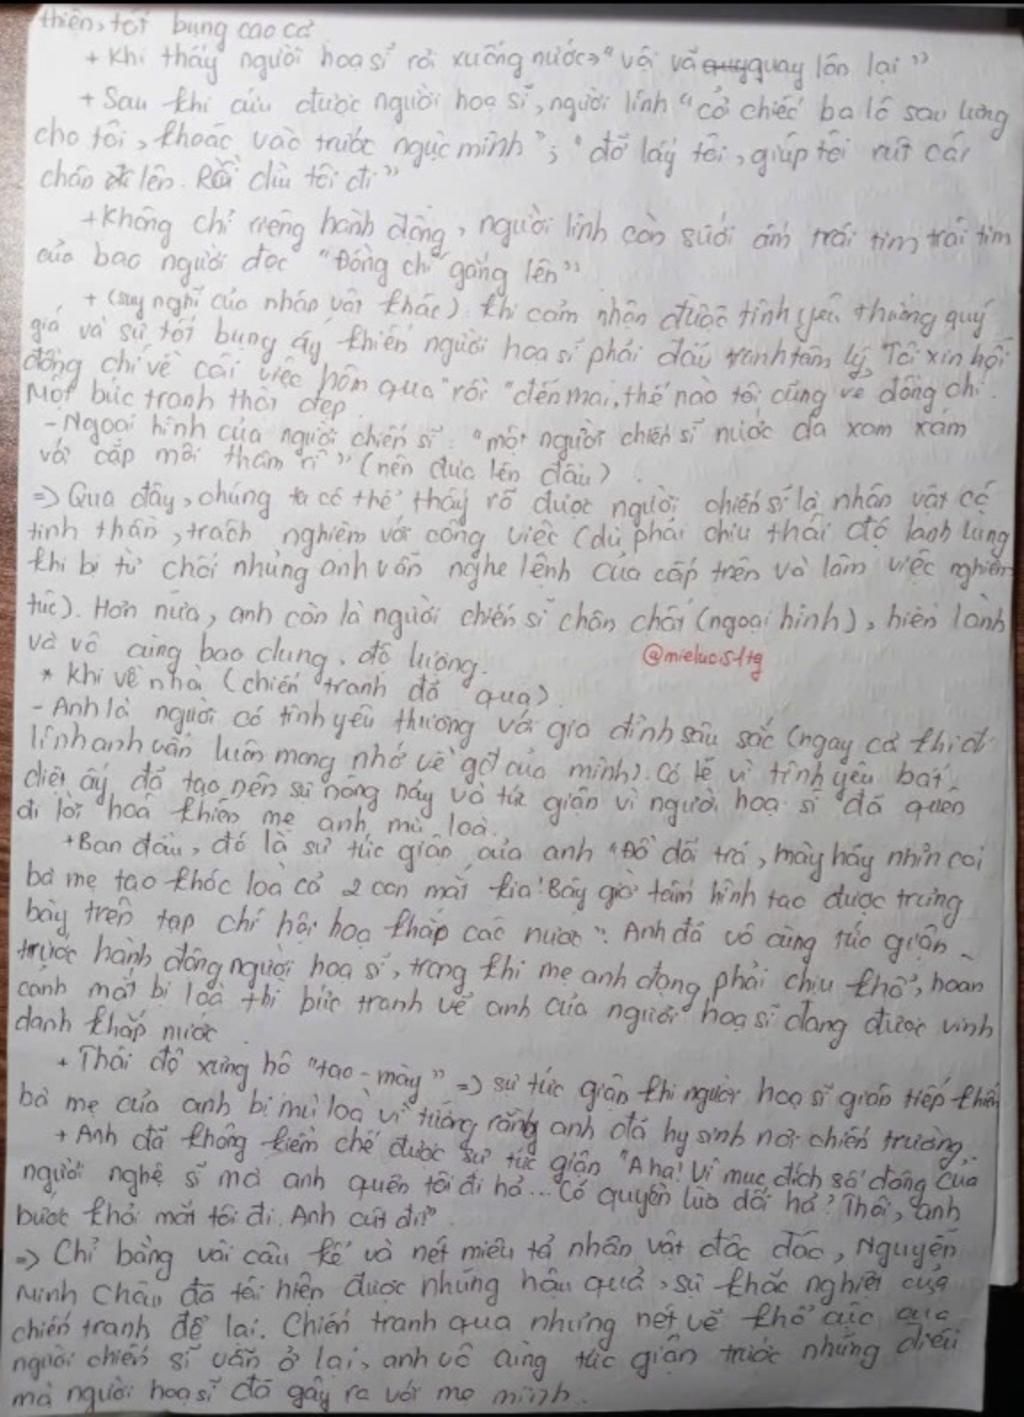 thiện, tốt bụng cao cả
+ Khi thấy người hoạ sĩ rơi xuống nước → "vội vã quay lộn lại"
+ Sau khi cứu được người hoạ sĩ, người lính "cởi chiếc ba lô sau lưng
cho tôi, khoác vào trước ngực mình"; "đỡ lấy tôi, giúp tôi rút cái
chân lên. Rồi dìu tôi đi"
+ Không chỉ riêng hành động, người lính còn sưởi ấm trái tim trái tim
của bao người đọc "Đồng chí gắng lên"
+ (suy nghĩ của nhân vật khác) khi cảm nhận được tình yêu thương quý
giá và sự tốt bụng ấy khiến người hoạ sĩ phải đấu tranh tâm lý "Tôi xin hỏi
đồng chí về cái việc hôm qua" rồi "đến mai, thế nào tôi cũng vẽ đồng chí.
Một bức tranh thật đẹp.
- Ngoại hình của người chiến sĩ: "một người chiến sĩ nước da xam xám
với cặp môi thâm rì" (nên đưa lên đầu)
=> Qua đây, chúng ta có thể thấy rõ được người chiến sĩ là nhân vật có
tinh thần, trách nghiệm với công việc (dù phải chịu thái độ lạnh lùng
khi bị từ chối nhưng anh vẫn nghe lệnh của cấp trên và làm việc nghiêm
túc). Hơn nữa, anh còn là người chiến sĩ chân chất (ngoại hình), hiền lành
và vô cùng bao dung, độ lượng.
@mieluci5ltg
* Khi về nhà (chiến tranh đã qua)
- Anh là người có tình yêu thương với gia đình sâu sắc (ngay cả khi đi
lính anh vẫn luôn mong nhớ về gđ của mình). Có lẽ vì tình yêu bất
diệt ấy đã tạo nên sự nóng nảy và tức giận vì người hoạ sĩ đã quên
đi lời hoá khiến mẹ anh mù loà.
+ Ban đầu, đó là sự tức giận của anh "Đồ dối trá, mày hãy nhìn coi
bà mẹ tao khóc loà cả 2 con mắt kia! Bây giờ tấm hình tao được trưng
bày trên tạp chí hội hoạ khắp các nước". Anh đã vô cùng tức giận
trước hành động người hoạ sĩ, trong khi mẹ anh đang phải chịu khổ, hoàn
cảnh mắt bị loà thì bức tranh vẽ anh của người hoạ sĩ đang được vinh
danh khắp nước
+ Thái độ xưng hô "tao - mày" => sự tức giận khi người hoạ sĩ gián tiếp khiến
bà mẹ của anh bị mù loà vì tưởng rằng anh đã hy sinh nơi chiến trường.
+ Anh đã không kiềm chế được sự tức giận "A ha! Vì mục đích số đông của
người nghệ sĩ mà anh quên tôi đi hả... Có quyền lừa dối hả? Thôi, anh
bước khỏi mắt tôi đi. Anh cút đi!"
=> Chỉ bằng vài câu kể và nét miêu tả nhân vật độc đáo, Nguyễn
Minh Châu đã tái hiện được những hậu quả, sự khắc nghiệt của
chiến tranh để lại. Chiến tranh qua nhưng nét vẽ khổ cực của
người chiến sĩ vẫn ở lại, anh vô cùng tức giận trước những điều
mà người hoạ sĩ đã gây ra với mẹ mình.